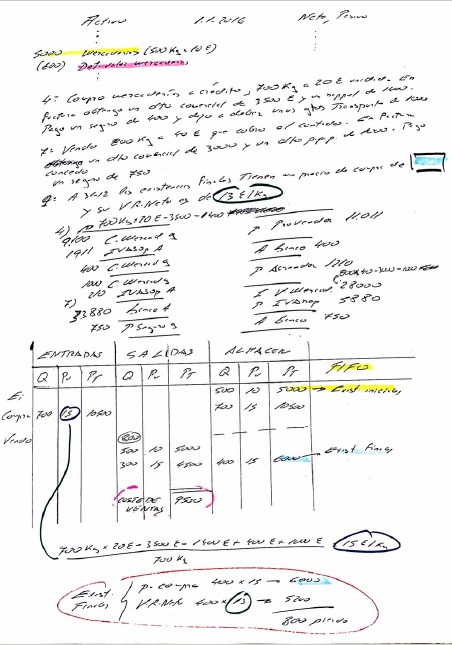 Activo 1.1.2016 Neto, Pasivo
5000 Mercaderías (500 Kg x 10 €)
(600) Det. valor mercaderías
4= Compro mercaderías a crédito, 700 Kg a 20 € unidad. En
factura obtengo un dto comercial de 3500 € y un rappel de 1400.
Pago un seguro de 400 y dejo a deber unos gtos Transporte de 1000
7= Vendo 800 Kg a 40 € que cobro al contado. En factura
concedo un dto comercial de 3000 y un dto p.p.p. de 1000. Pago
un seguro de 750
A 31-12 las existencias finales tienen un precio de compra de
y su V.R.Neto es de 13 €/Kg
4) 700 Kg x 20 € - 3500 - 1400
9100 C. Mercad g P Proveedor 11.011
1911 IVASOP A
400 C. Mercad g A Banco 400
1000 C. Mercad g P Acreedor 1210
210 IVASOP A 800 x 40 - 3000 - 1000
7) I V Mercad 28000
33880 Banco A P IVARep 5880
750 P Seguro g A Banco 750
ENTRADAS SALIDAS ALMACEN
Q Pu PT Q Pu PT Q Pu PT FIFO
Ei 500 10 5000 → Exist iniciales
Compro 700 15 10500 700 15 10500
Vendo 800
500 10 5000
300 15 4500 400 15 6000 Exist Finales
COSTE DE VENTAS 9500
700 Kg x 20 € - 3500 € - 1400 € + 400 € + 1000 € 15 €/Kg
700 Kg
Exist. Finales P. compra 400 x 15 → 6000
V.R.Neto 400 x 13 → 5200
800